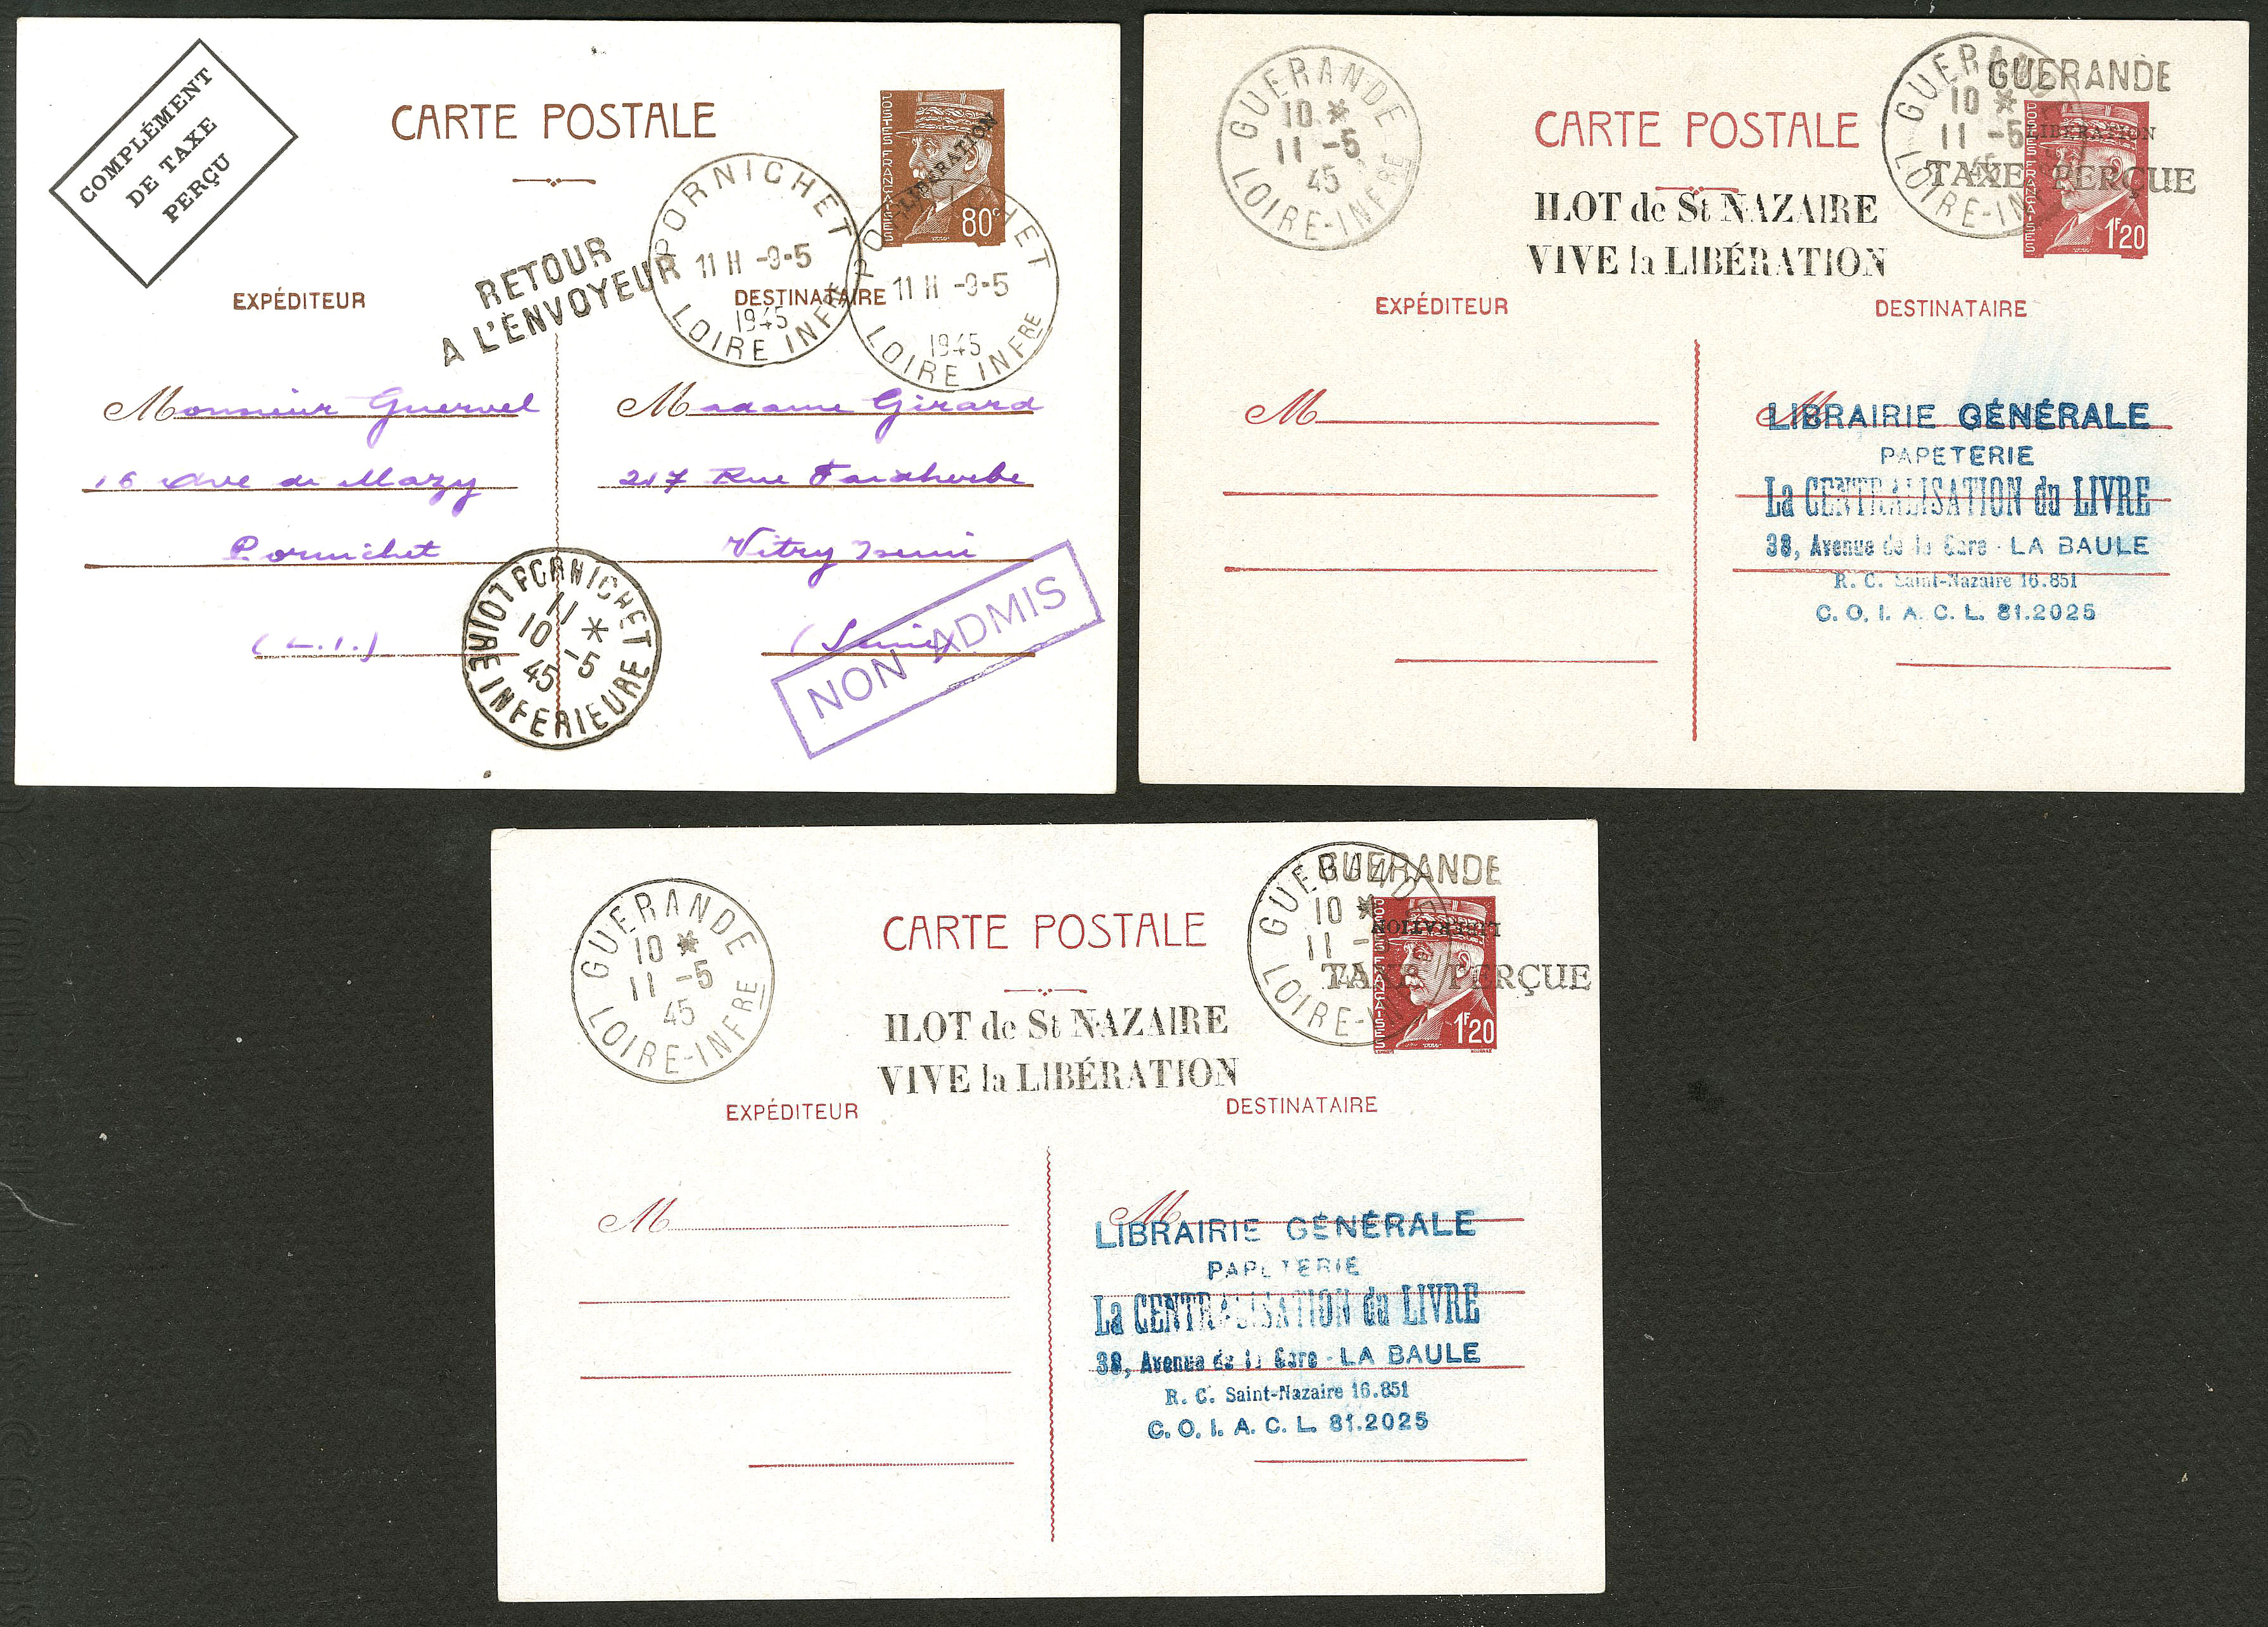 COMPLÉMENT
DE TAXE
PERÇU
CARTE POSTALE
POSTES FRANÇAISES
LIBÉRATION
80c
RETOUR
A L'ENVOYEUR
PORNICHET
11 H -9-5
1945
LOIRE INFRE
PORNICHET
11 H -9-5
1945
LOIRE INFRE
EXPÉDITEUR
DESTINATAIRE
Monsieur Guervel
16 Ave de Mazy
Pornichet
(L.I.)
Madame Girard
217 Rue Faidherbe
Vitry
(Seine)
PORNICHET
11 *
10 -5
45
LOIRE INFERIEURE
NON ADMIS
GUERANDE
10 *
11 -5
45
LOIRE-INFRE
CARTE POSTALE
ILOT de St NAZAIRE
VIVE la LIBÉRATION
GUERANDE
10 *
11 -5
45
LOIRE-IN
GUERANDE
LIBÉRATION
TAXE PERÇUE
POSTES FRANÇAISES
1F20
EXPÉDITEUR
DESTINATAIRE
M
M
LIBRAIRIE GÉNÉRALE
PAPETERIE
La CENTRALISATION du LIVRE
38, Avenue de la Gare - LA BAULE
R. C. Saint-Nazaire 16.851
C. O. I. A. C. L. 81.2025
GUERANDE
10 *
11 -5
45
LOIRE-INFRE
CARTE POSTALE
ILOT de St NAZAIRE
VIVE la LIBÉRATION
GUERANDE
10 *
11 -
45
LOIRE-IN
GUERANDE
LIBÉRATION
TAXE PERÇUE
POSTES FRANÇAISES
1F20
EXPÉDITEUR
DESTINATAIRE
M
M
LIBRAIRIE GÉNÉRALE
PAPETERIE
La CENTRALISATION du LIVRE
38, Avenue de la Gare - LA BAULE
R. C. Saint-Nazaire 16.851
C. O. I. A. C. L. 81.2025